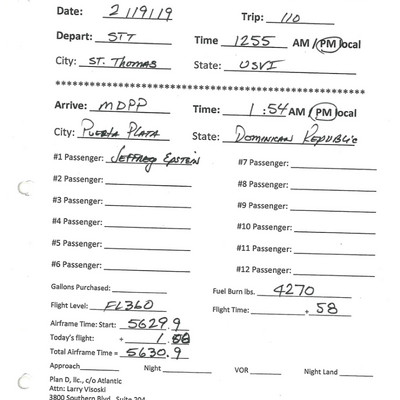 Date: 2/19/19 Trip: 110
Depart: STT Time 1255 AM / PM local
City: ST. THOMAS State: USVI
************************************************************
Arrive: MDPP Time: 1:54 AM / PM local
City: PUERTA PLATA State: DOMINICAN REPUBLIC
#1 Passenger: JEFFREY EPSTEIN #7 Passenger:
#2 Passenger: #8 Passenger:
#3 Passenger: #9 Passenger:
#4 Passenger: #10 Passenger:
#5 Passenger: #11 Passenger:
#6 Passenger: #12 Passenger:
Gallons Purchased: Fuel Burn lbs. 4270
Flight Level: FL360 Flight Time: . 58
Airframe Time: Start: 5629.9
Today's flight: + 1.
Total Airframe Time = 5630.9
Approach Night VOR Night Land
Plan D, llc., c/o Atlantic
Attn: Larry Visoski
3800 Southern Blvd., Suite 204